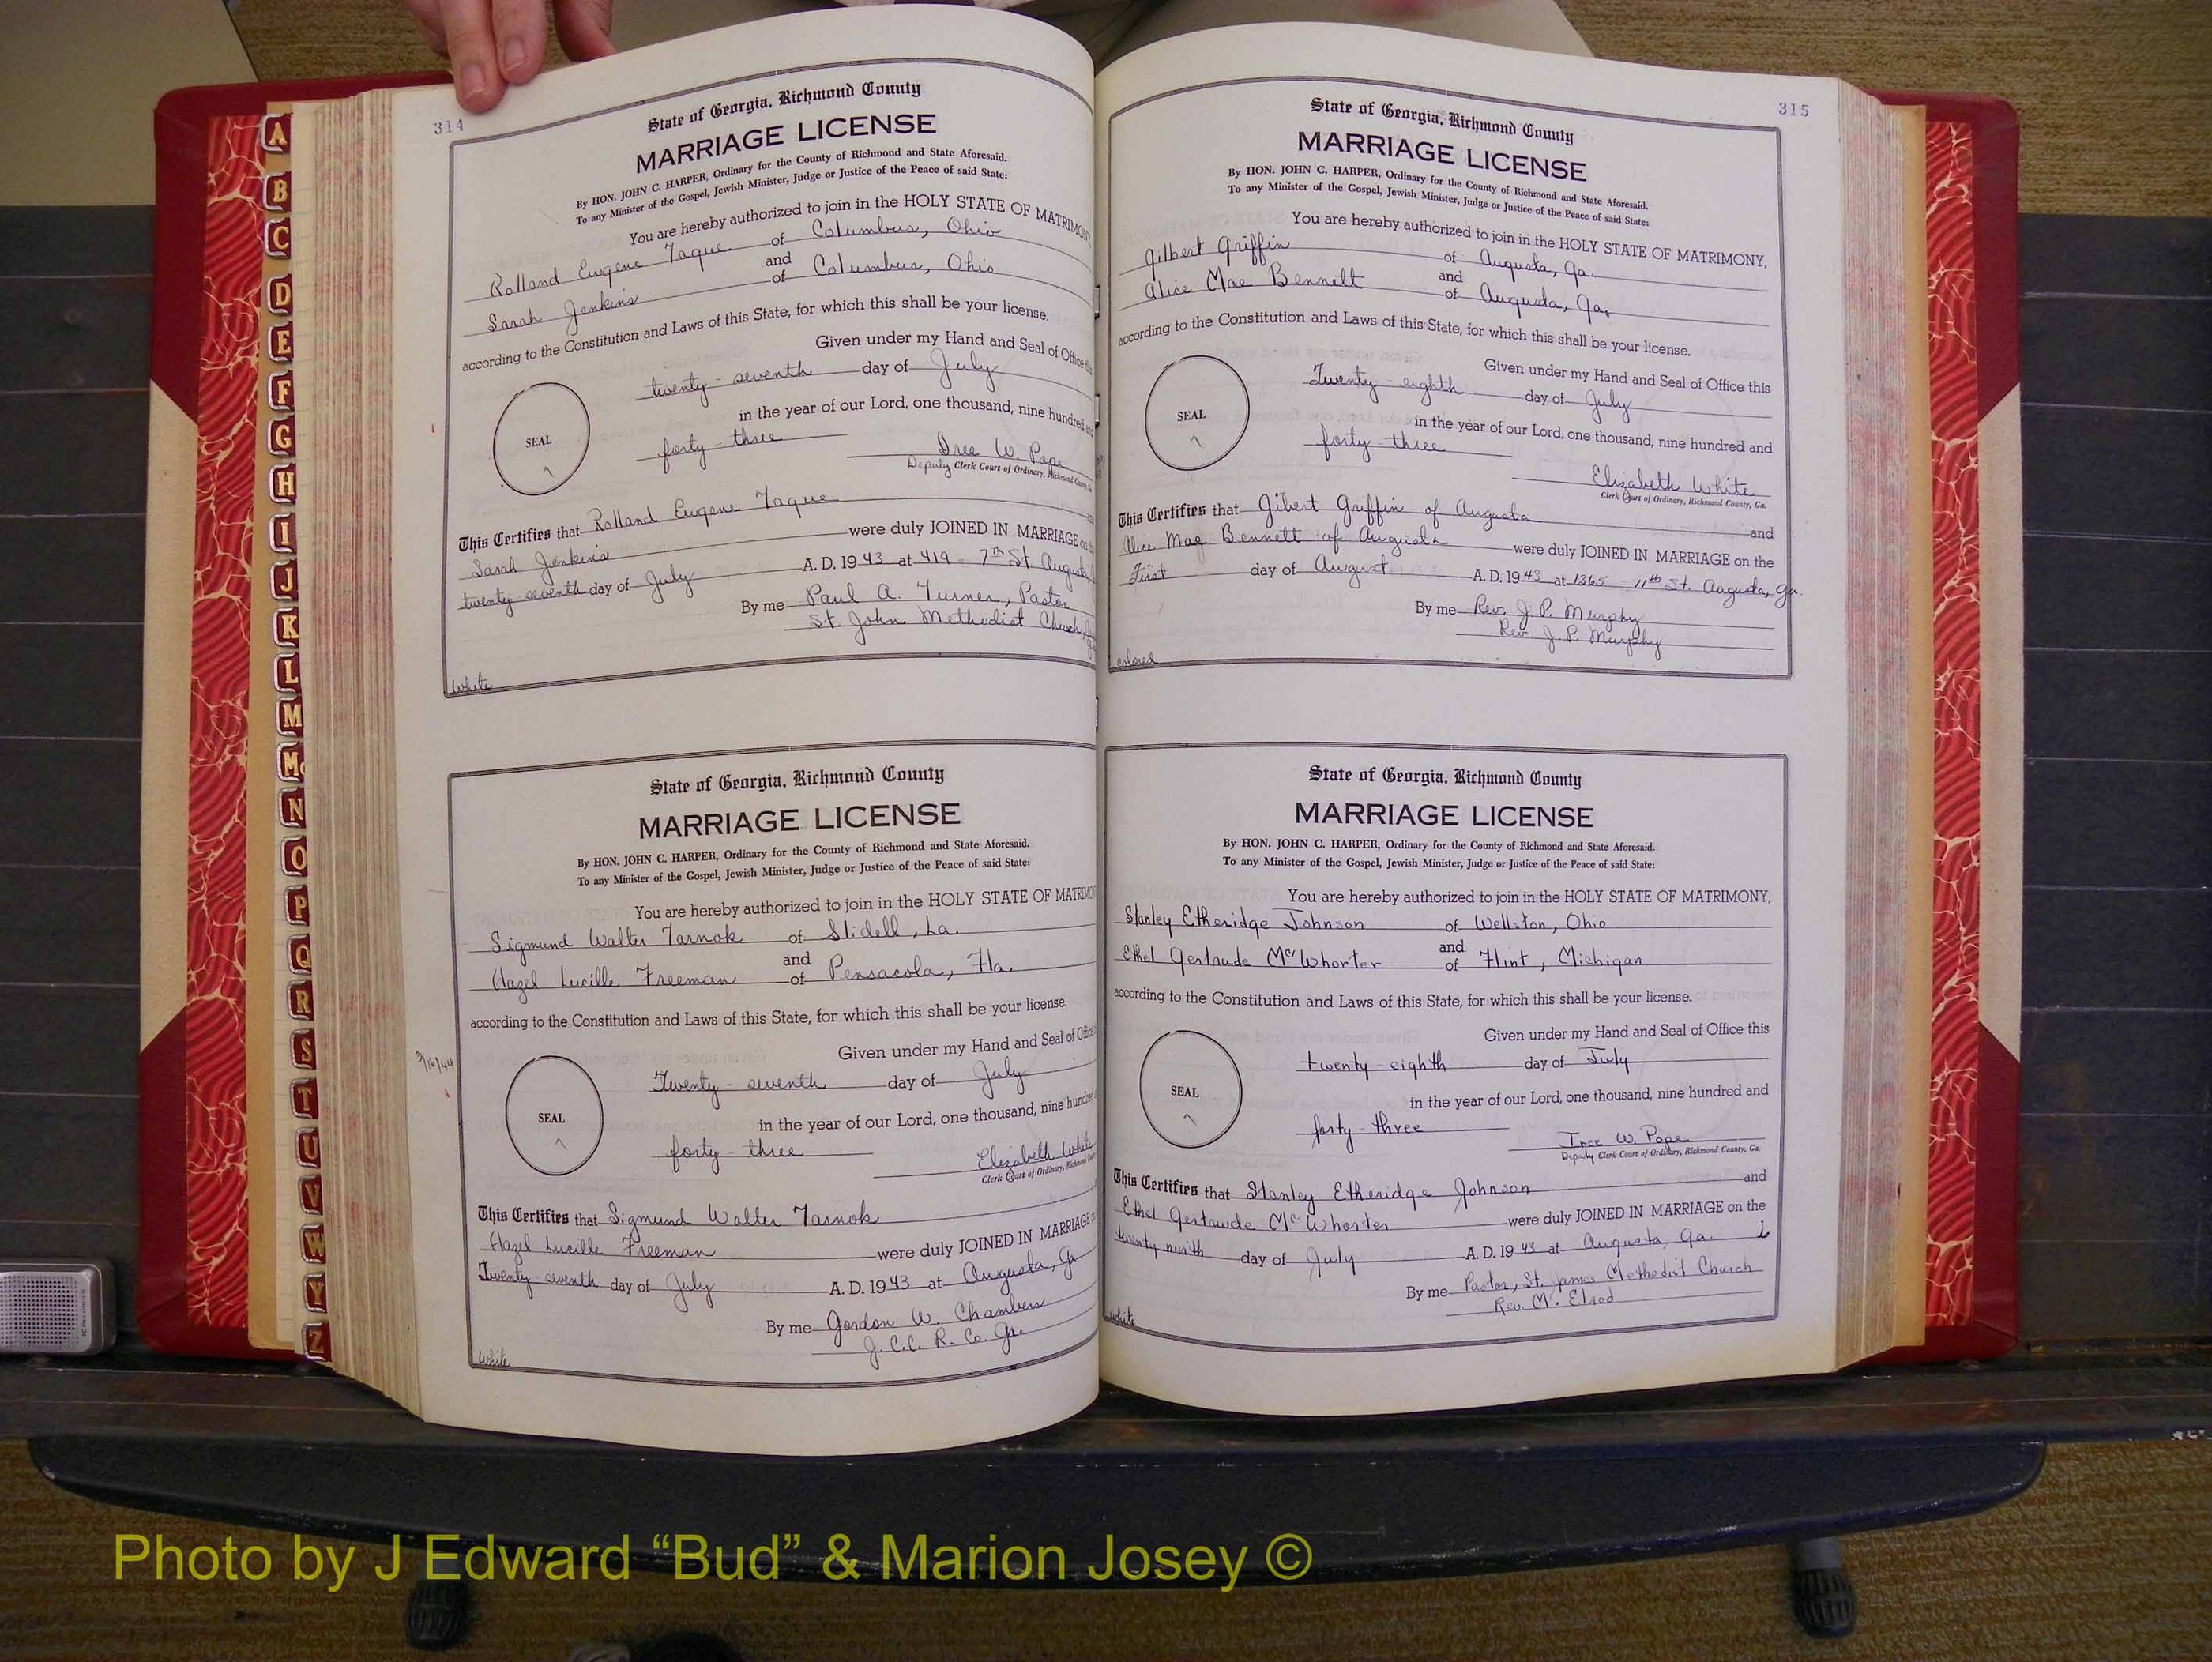 314
State of Georgia, Richmond County
MARRIAGE LICENSE
By HON. JOHN C. HARPER, Ordinary for the County of Richmond and State Aforesaid.
To any Minister of the Gospel, Jewish Minister, Judge or Justice of the Peace of said State:
You are hereby authorized to join in the HOLY STATE OF MATRIMONY
Rolland Eugene Taque of Columbus, Ohio
and
Sarah Jenkins of Columbus, Ohio
according to the Constitution and Laws of this State, for which this shall be your license.
Given under my Hand and Seal of Office
twenty-seventh day of July
in the year of our Lord, one thousand, nine hundred
forty-three
SEAL
W. Pope
Deputy Clerk Court of Ordinary, Richmond County
This Certifies that Rolland Eugene Taque
Sarah Jenkins were duly JOINED IN MARRIAGE on
twenty-seventh day of July A. D. 1943 at 419 - 7th St. Augusta
By me Paul A. Turner, Pastor
St. John Methodist Church
White
State of Georgia, Richmond County
MARRIAGE LICENSE
By HON. JOHN C. HARPER, Ordinary for the County of Richmond and State Aforesaid.
To any Minister of the Gospel, Jewish Minister, Judge or Justice of the Peace of said State:
You are hereby authorized to join in the HOLY STATE OF MATRIMO
Sigmund Walter Tarnok of Slidell, La.
and
Hazel Lucille Freeman of Pensacola, Fla.
according to the Constitution and Laws of this State, for which this shall be your license.
Given under my Hand and Seal of Office
9/16/44
Twenty-seventh day of July
in the year of our Lord, one thousand, nine hundred
forty-three
SEAL
Elizabeth White
Clerk Court of Ordinary, Richmond
This Certifies that Sigmund Walter Tarnok
Hazel Lucille Freeman were duly JOINED IN MARRIAGE
Twenty-seventh day of July A. D. 1943 at Augusta, Ga
By me Gordon W. Chambers
J. C.C. R. Co. Ga.
White
315
State of Georgia, Richmond County
MARRIAGE LICENSE
By HON. JOHN C. HARPER, Ordinary for the County of Richmond and State Aforesaid.
To any Minister of the Gospel, Jewish Minister, Judge or Justice of the Peace of said State:
You are hereby authorized to join in the HOLY STATE OF MATRIMONY,
Gilbert Griffin of Augusta, Ga.
and
Alice Mae Bennett of Augusta, Ga.
according to the Constitution and Laws of this State, for which this shall be your license.
Given under my Hand and Seal of Office this
Twenty-eighth day of July
in the year of our Lord, one thousand, nine hundred and
forty-three
SEAL
Elizabeth White
Clerk Court of Ordinary, Richmond County, Ga.
This Certifies that Gilbert Griffin of Augusta and
Alice Mae Bennett of Augusta were duly JOINED IN MARRIAGE on the
First day of August A. D. 1943 at 1365 - 11th St. Augusta, Ga.
By me Rev. J. P. Murphy
Rev. J. P. Murphy
colored
State of Georgia, Richmond County
MARRIAGE LICENSE
By HON. JOHN C. HARPER, Ordinary for the County of Richmond and State Aforesaid.
To any Minister of the Gospel, Jewish Minister, Judge or Justice of the Peace of said State:
You are hereby authorized to join in the HOLY STATE OF MATRIMONY,
Stanley Etheridge Johnson of Wellston, Ohio
and
Ethel Gertrude McWhorter of Flint, Michigan
according to the Constitution and Laws of this State, for which this shall be your license.
Given under my Hand and Seal of Office this
twenty-eighth day of July
in the year of our Lord, one thousand, nine hundred and
forty-three
SEAL
W. Pope
Deputy Clerk Court of Ordinary, Richmond County, Ga.
This Certifies that Stanley Etheridge Johnson and
Ethel Gertrude McWhorter were duly JOINED IN MARRIAGE on the
twenty ninth day of July A. D. 1943 at Augusta, Ga.
By me Pastor, St. James Methodist Church
Rev. M. Elrod
white
A
B
C
D
E
F
G
H
I
J
K
L
M
Mc
N
O
P
Q
R
S
T
U
V
W
Y
Z
Photo by J Edward “Bud” & Marion Josey ©